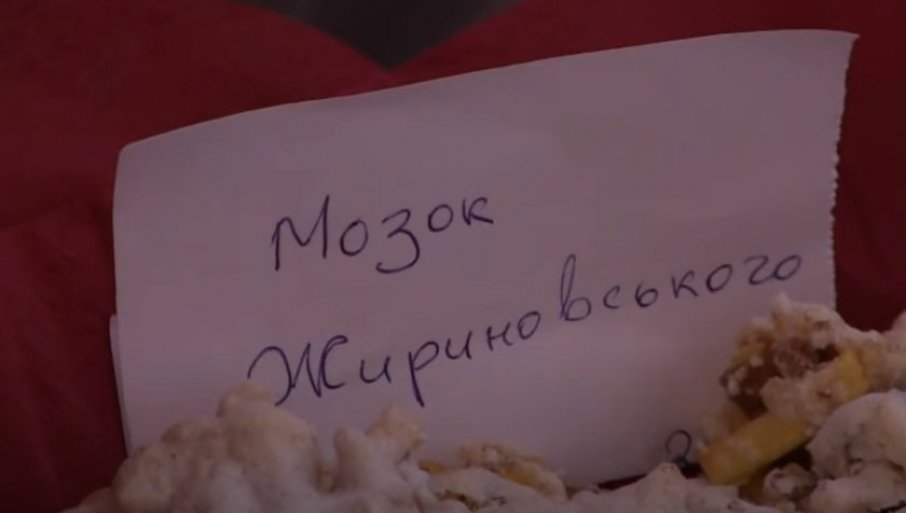 Мозок
Жириновського